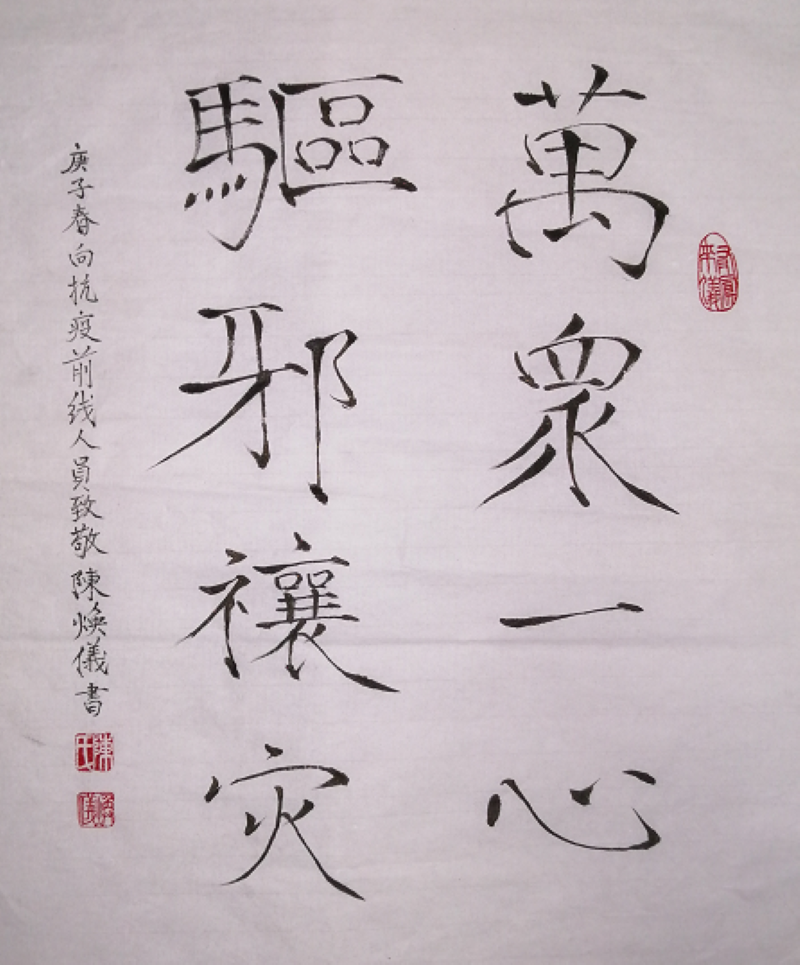 萬衆一心
驅邪禳灾
庚子春向抗疫前线人員致敬 陳焕儀書
陳氏
焕儀